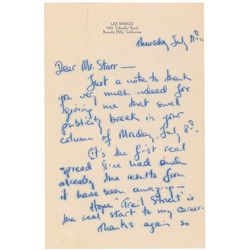 LEX BARKER
Beverly Hills, California
Thursday, July 11th
Dear Mr. Starr —
Just a note to thank
you very much indeed for
giving me that swell
publicity break in your
column of Monday, July 8th.
It's the first real
spread I've had and
already the results from
it have been amazing —
Hope Trail Street is
the real start to my career.
Thanks again so